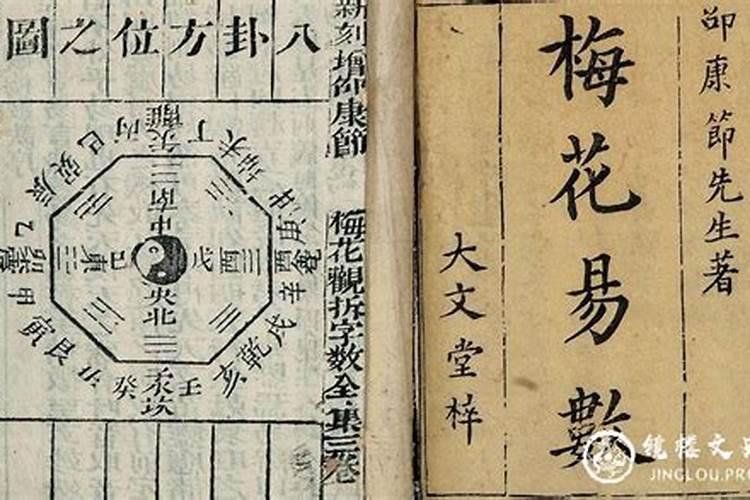 邵康節先生著
梅花易數
大文堂梓
新刻增邵康節
梅花觀拆字數全集三卷
八卦方位之圖
丙
丁
未
坤
申
庚
兌
辛
戌
乾
亥
壬
子坎
癸
丑
艮
寅
甲
乙
辰
巽
巳
離
南
中
央
北
東
己
戊
酉
JINGLOU.PR